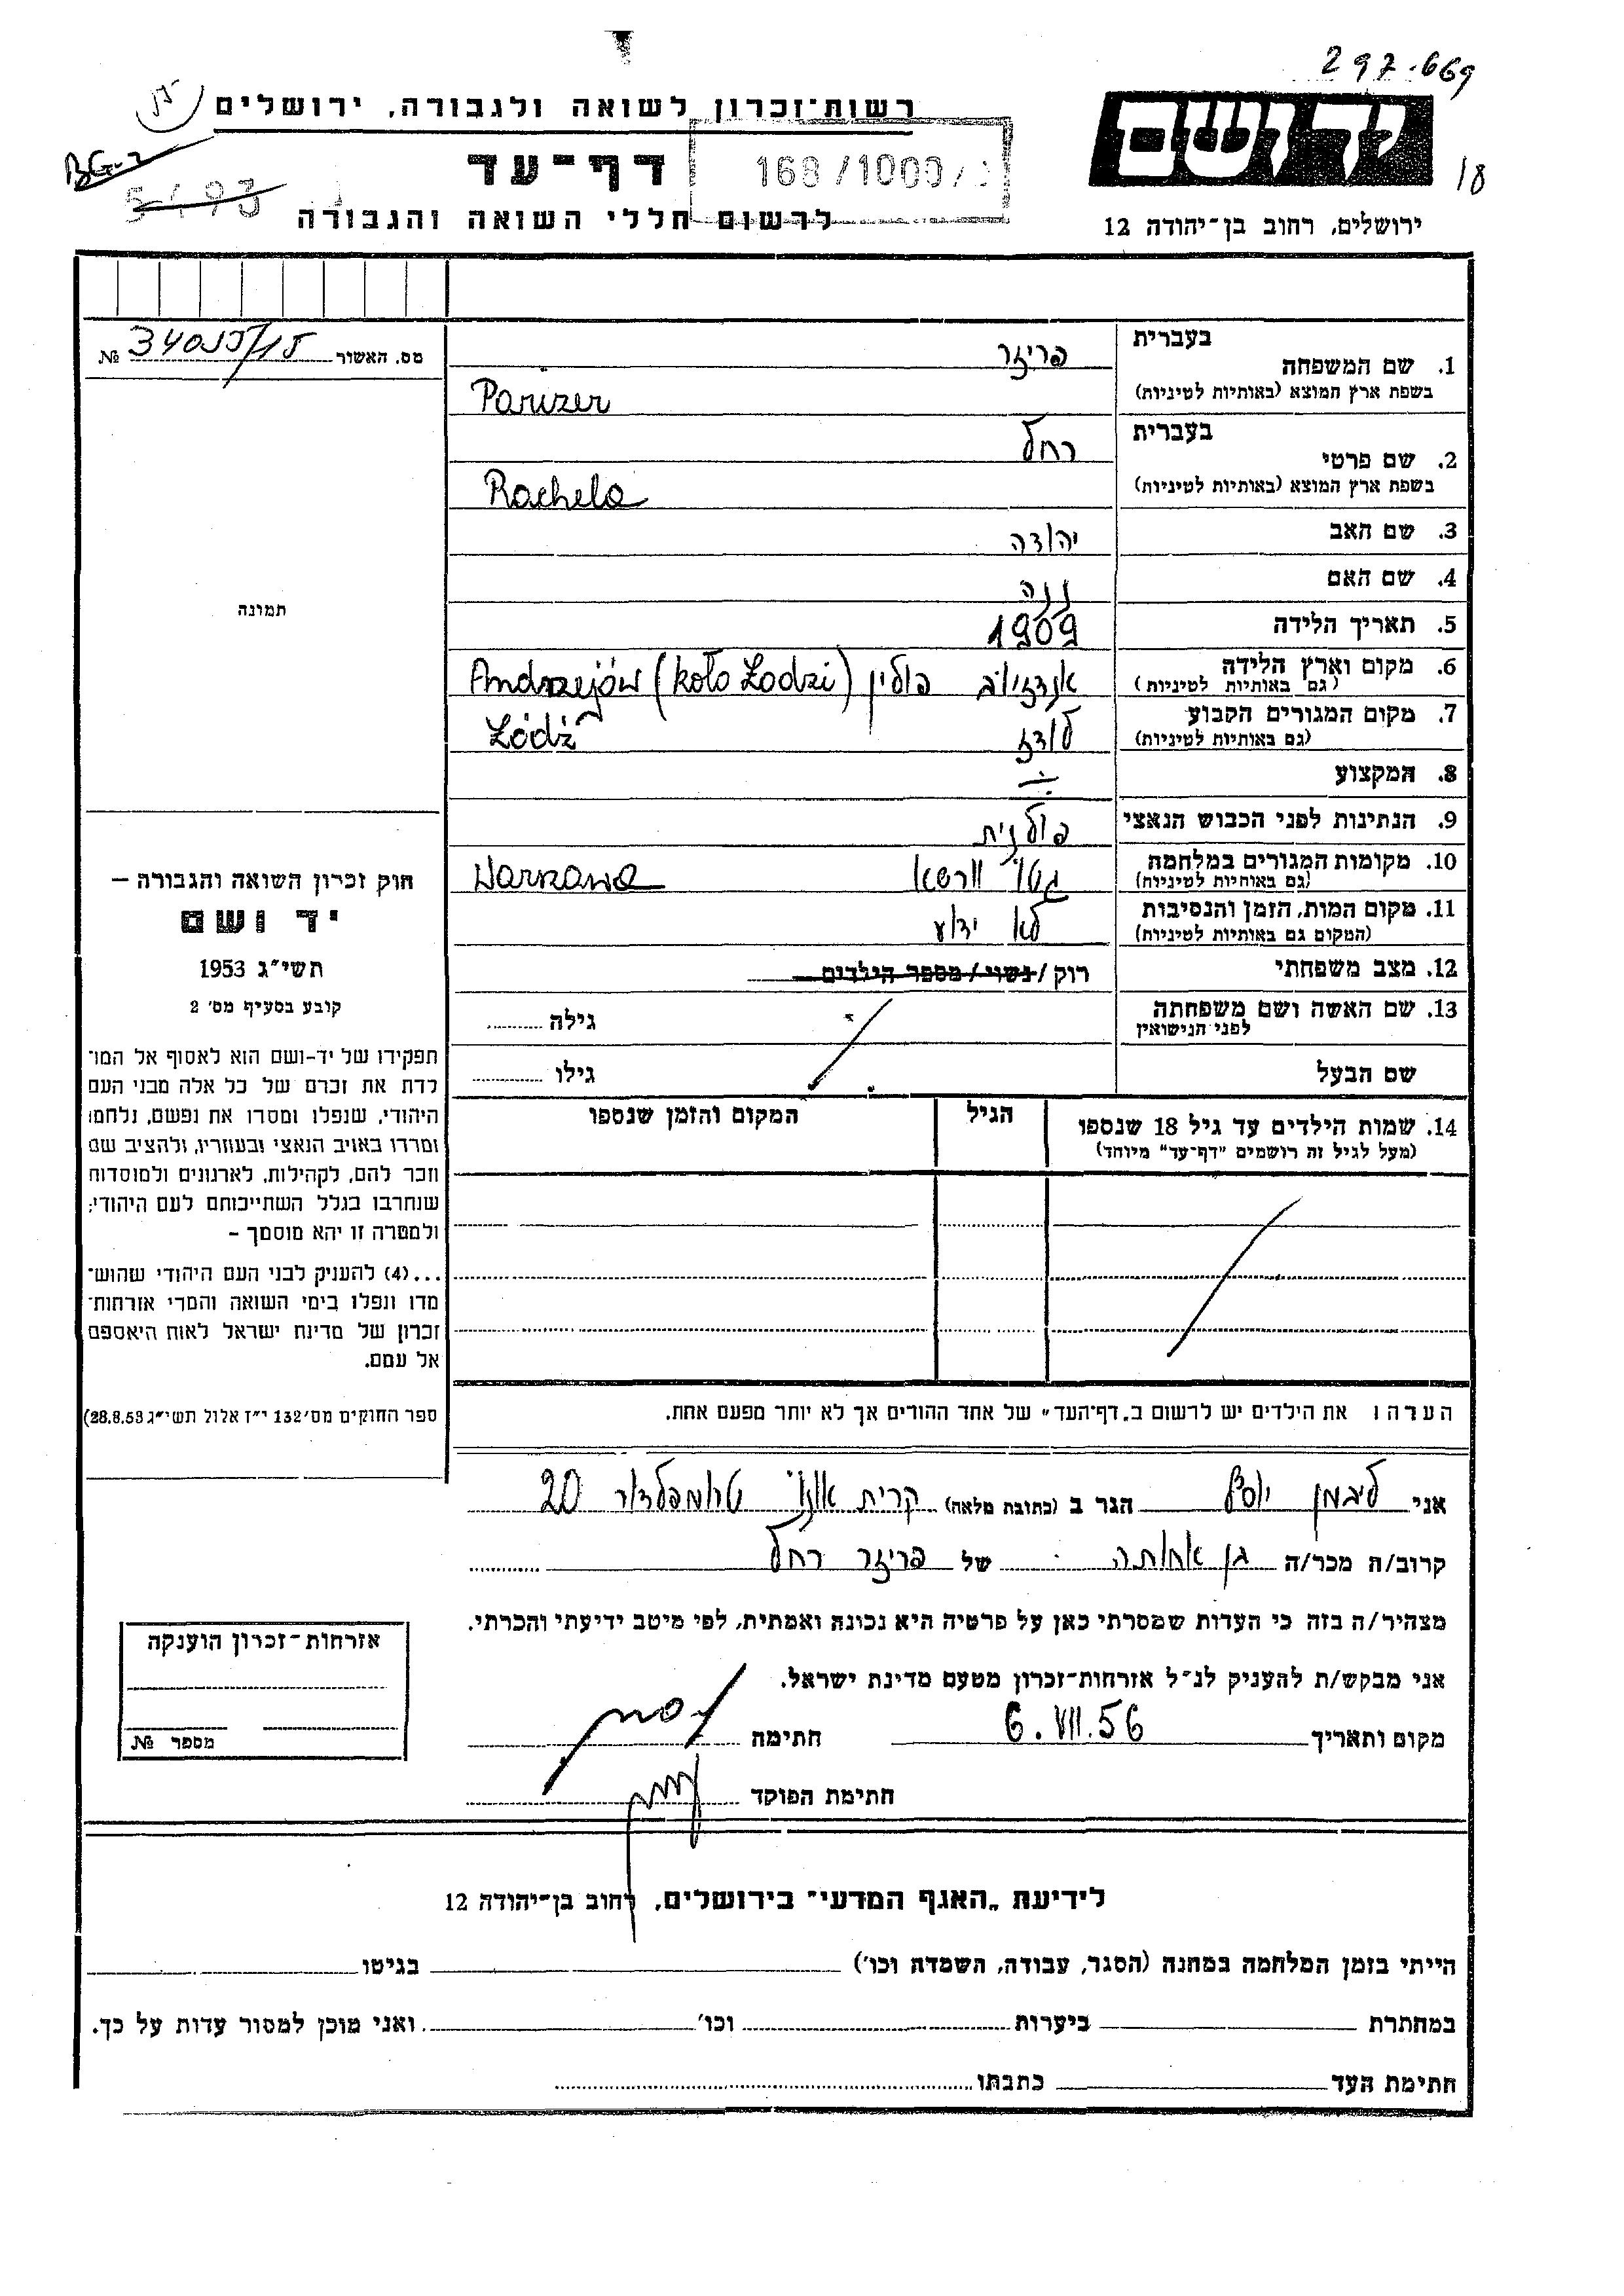 297.669
18
יד ושם
ירושלים, רחוב בן־יהודה 12
רשות־זכרון לשואה ולגבורה, ירושלים
BG-2
דף־עד
168/1000/
לרשום חללי השואה והגבורה
מס. האשור № 34055/15
1. שם המשפחה בעברית פריזר
בשפת ארץ המוצא (באותיות לטיניות) Parizer
2. שם פרטי בעברית רחל
בשפת ארץ המוצא (באותיות לטיניות) Rachela
3. שם האב יהודה
4. שם האם
5. תאריך הלידה 1909
6. מקום וארץ הלידה (גם באותיות לטיניות) אנדז'יוב פולין Andrzejów (koło Łodzi)
7. מקום המגורים הקבוע (גם באותיות לטיניות) לודז Łódź
8. המקצוע
9. הנתינות לפני הכבוש הנאצי פולנית
10. מקומות המגורים במלחמה (גם באותיות לטיניות) גטו וורשא Warszawa
11. מקום המות, הזמן והנסיבות (המקום גם באותיות לטיניות) לא ידוע
12. מצב משפחתי רוק / נשוי / מספר הילדים
13. שם האשה ושם משפחתה לפני הנישואין גילה
שם הבעל גילו
14. שמות הילדים עד גיל 18 שנספו הגיל המקום והזמן שנספו
(מעל לגיל זה רושמים "דף־עד" מיוחד)
תמונה
חוק זכרון השואה והגבורה —
יד ושם
תשי״ג 1953
קובע בסעיף מס׳ 2
תפקידו של יד-ושם הוא לאסוף אל המו־
לדת את זכרם של כל אלה מבני העם
היהודי, שנפלו ומסרו את נפשם, נלחמו
ומרדו באויב הנאצי ובעוזריו, ולהציב שם
וזכר להם, לקהילות, לארגונים ולמוסדות
שנחרבו בגלל השתייכותם לעם היהודי;
ולמטרה זו יהא מוסמך –
...(4) להעניק לבני העם היהודי שהוש־
מדו ונפלו בימי השואה והמרי אזרחות־
זכרון של מדינת ישראל לאות היאספם
אל עמם.
ספר החוקים מס׳ 132 י״ז אלול תשי״ג 28.8.53)
הערה: את הילדים יש לרשום ב„דף־העד" של אחד ההורים אך לא יותר מפעם אחת.
אני ליבמן יוסף הגר ב (כתובת מלאה) קרית אונו טרומפלדור 20
קרוב/ה מכר/ה בן אחותה של פריזר רחל
מצהיר/ה בזה כי העדות שמסרתי כאן על פרטיה היא נכונה ואמתית, לפי מיטב ידיעתי והכרתי.
אני מבקש/ת להעניק לנ״ל אזרחות־זכרון מטעם מדינת ישראל.
מקום ותאריך 6.VII.56 חתימה
חתימת הפוקד
אזרחות־זכרון הוענקה
מספר №
לידיעת „האגף המדעי" בירושלים, רחוב בן־יהודה 12
הייתי בזמן המלחמה במחנה (הסגר, עבודה, השמדה וכו׳) בגיטו
במחתרת ביערות וכו׳ ואני מוכן למסור עדות על כך.
חתימת העד כתבתו